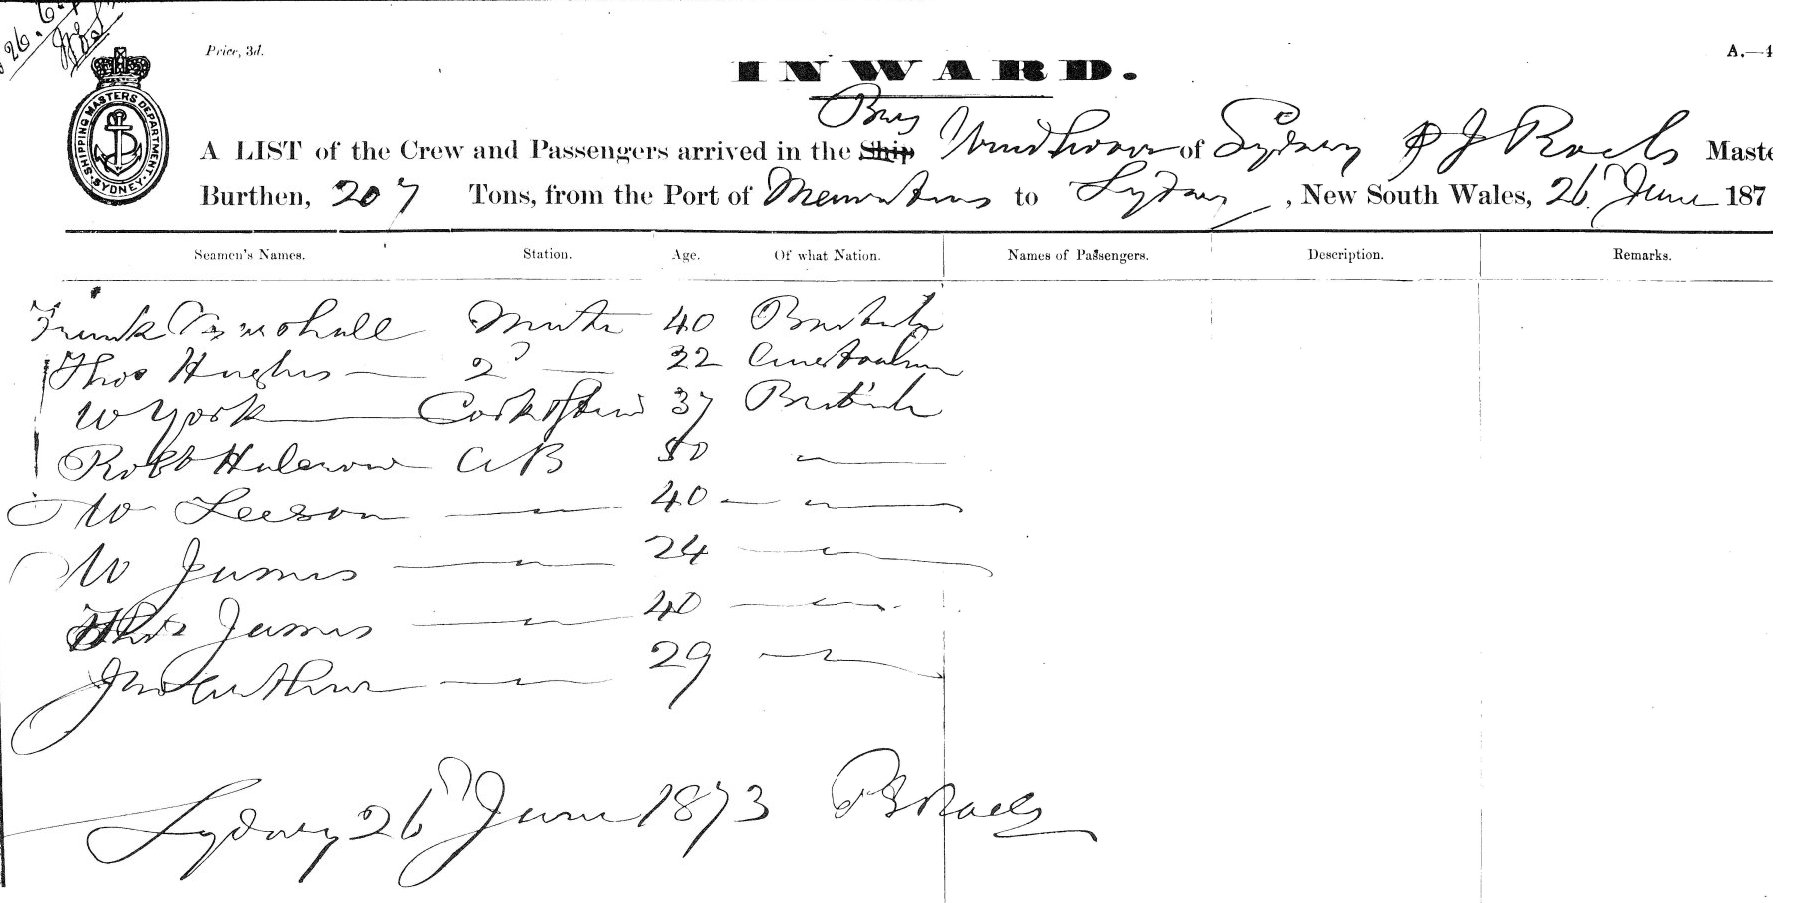 26.6.
Price, 3d.
A.—4
INWARD.
SHIPPING MASTERS DEPARTMENT. SYDNEY.
Brig
A LIST of the Crew and Passengers arrived in the Ship of Sydney Maste
Burthen, 207 Tons, from the Port of to Sydney, New South Wales, 26 June 187
Seamen's Names. Station. Age. Of what Nation. Names of Passengers. Description. Remarks.
Frank Mate 40 British
Thos Hughes — 2d — 22 Australian
W York Cook & Steward 37 British
Robt AB 50 —
W Leeson — 40 — —
W James — 24 —
Thos James — 40 —
— 29 —
Sydney 26 June 1873